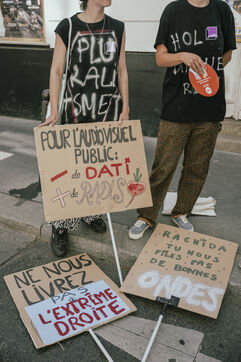 PLU
RALI
HOL
POUR L'AUDIOVISUEL
PUBLIC:
- de DATI
+ de RADIS
RACHIDA TU NOUS
FILES PAS DE
BONNES
ONDES
NE NOUS
LIVREZ PAS À
L'EXTRÊME
DROITE